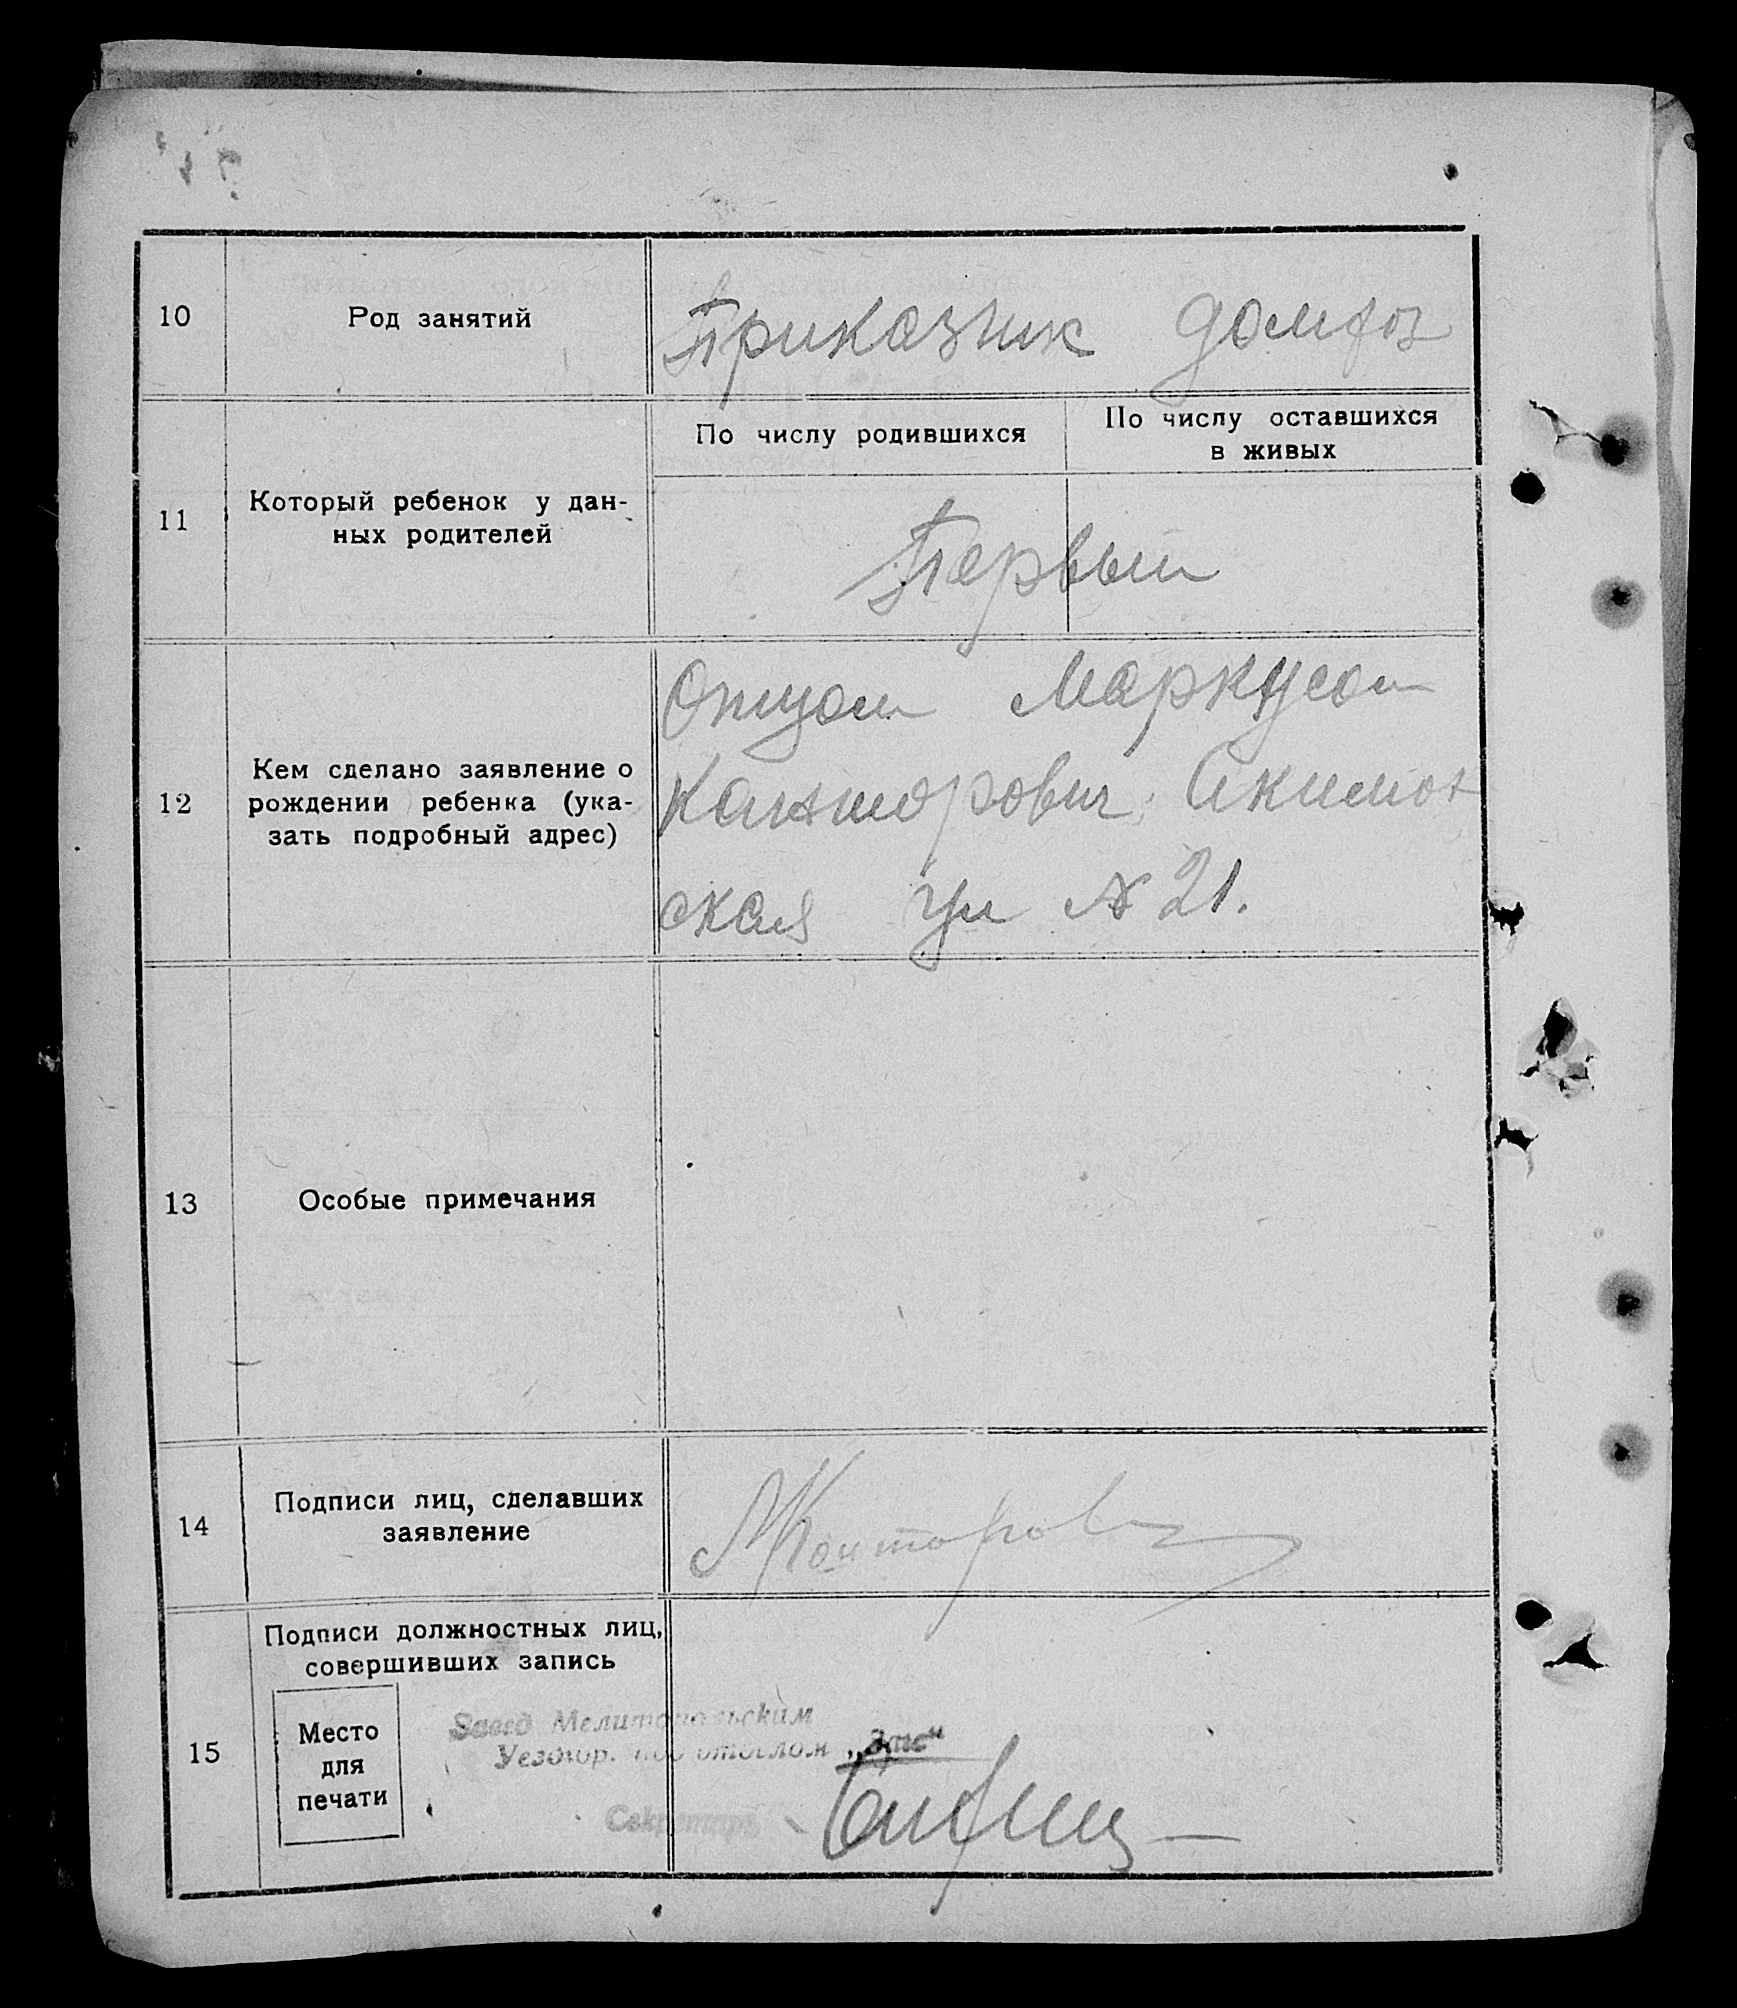 10
Род занятий
Приказчик домхоз
11
Который ребенок у дан-
ных родителей
По числу родившихся
По числу оставшихся
в живых
Первый
12
Кем сделано заявление о
рождении ребенка (ука-
зать подробный адрес)
Отцом Маркусом
Канторович Акимов
ская ул № 21.
13
Особые примечания
14
Подписи лиц, сделавших
заявление
МКанторович
15
Подписи должностных лиц,
совершивших запись
Место
для
печати
Завед Мелитопольским
Уездгор. отделом „Загс“
Секретарь